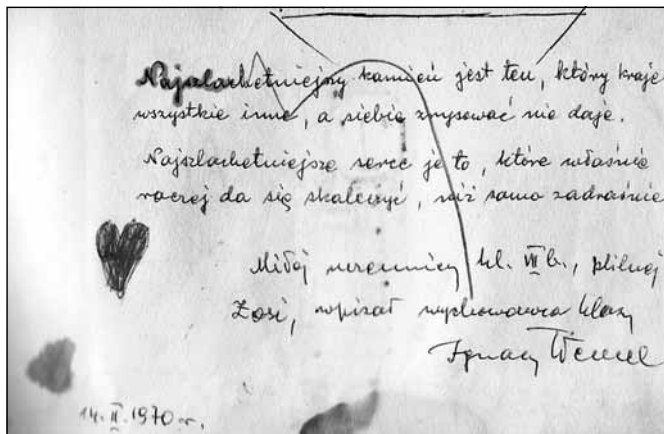 Najszlachetniejszy kamień jest ten, który kraje
wszystkie inne, a siebie zrysować nie daje.
Najszlachetniejsze serce je to, które właśnie
raczej da się skaleczyć, niż samo zadraśnie
Miłej uczennicy kl. VII b., pilnej
Zosi, wpisał wychowawca klasy
Ignacy
14. II. 1970 r.